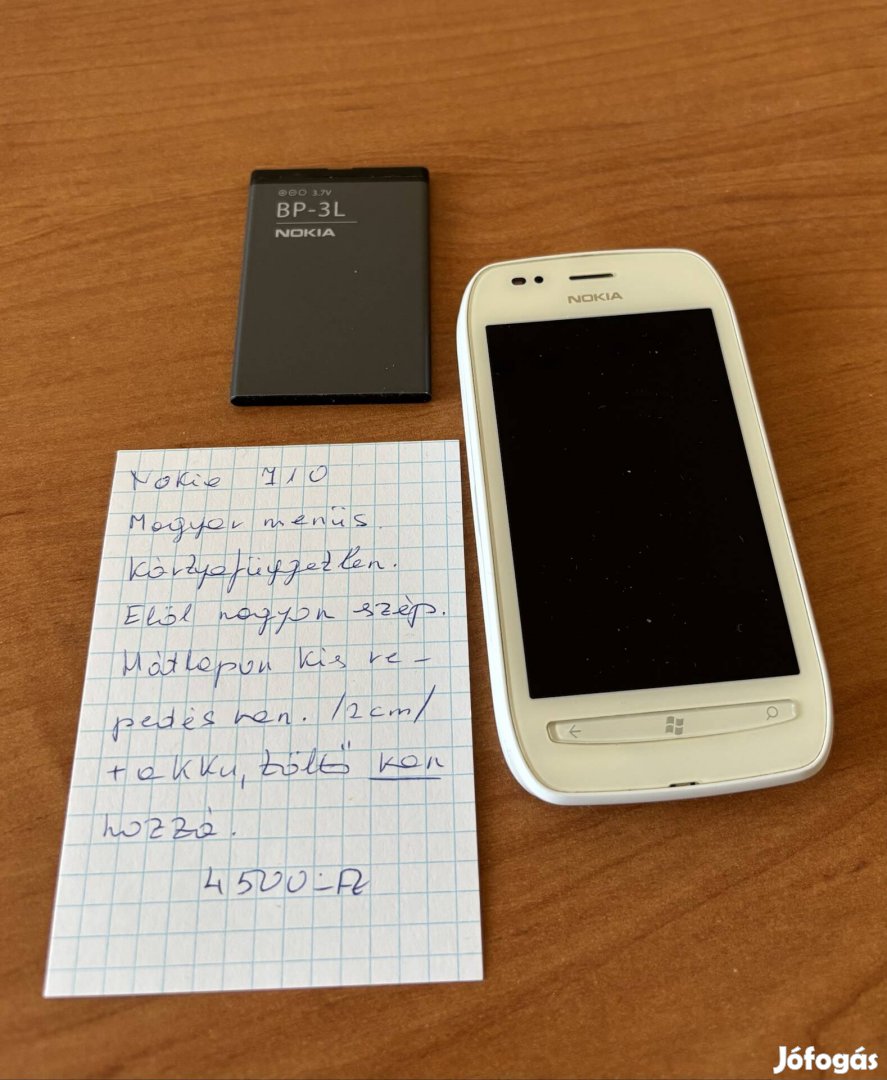 3.7V
BP-3L
NOKIA
NOKIA
Nokia 710
Magyar menüs.
Kártyafüggetlen.
Elöl nagyon szép.
Hátlapon kis re-
pedés van. /2cm/
+ akku, töltő van
hozzá.
4500-Ft
Jófogás